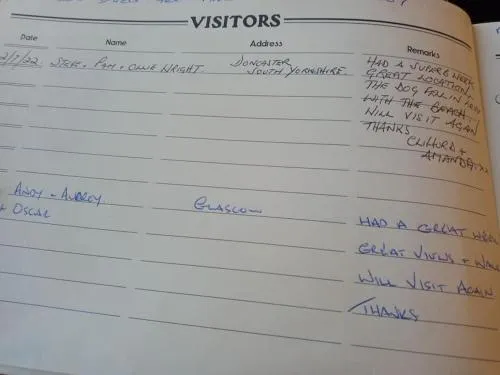 VISITORS
Date Name Address Remarks
2/7/22 STEVE, PAM, OLLIE WRIGHT. DONCASTER HAD A SUPERB WEEK
SOUTH YORKSHIRE. GREAT LOCATION,
THE DOG FELL IN LOVE
WITH THE BEACH.
WILL VISIT AGAIN
THANKS
CLIFFORD +
AMANDA
ANDY - AUDREY GLASGOW HAD A GREAT WEEK
+ OSCAR GREAT VIEWS +
WILL VISIT AGAIN
THANKS